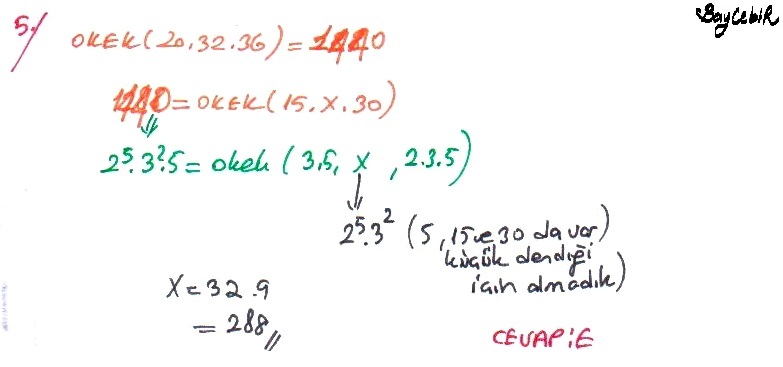 BaycebiR
5./ OKEK(20.32.36)=1440
1440=OKEK(15.X.30)
2⁵.3².5= okek (3.5, x , 2.3.5)
2⁵.3² (5, 15 ve 30 da var)
küçük dendiği
için almadık)
X=32.9
=288//
CEVAP:E